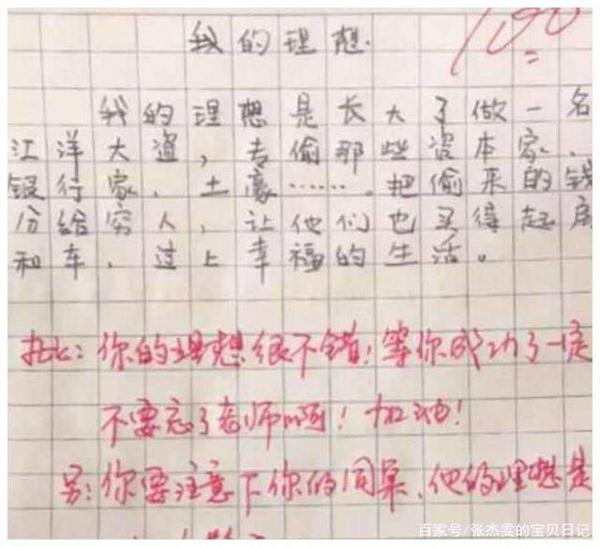 我的理想.
100
我的理想是长大了做一名
江洋大盗，专偷那些资本家、
银行家、土豪……。把偷来的钱
分给穷人，让他们也买得起房
和车，过上幸福的生活。
批：你的理想很不错！等你成功了一定
不要忘了老师啊！加油！
另：你要注意下你的同桌，他的理想是
百家号/张杰雯的宝贝日记